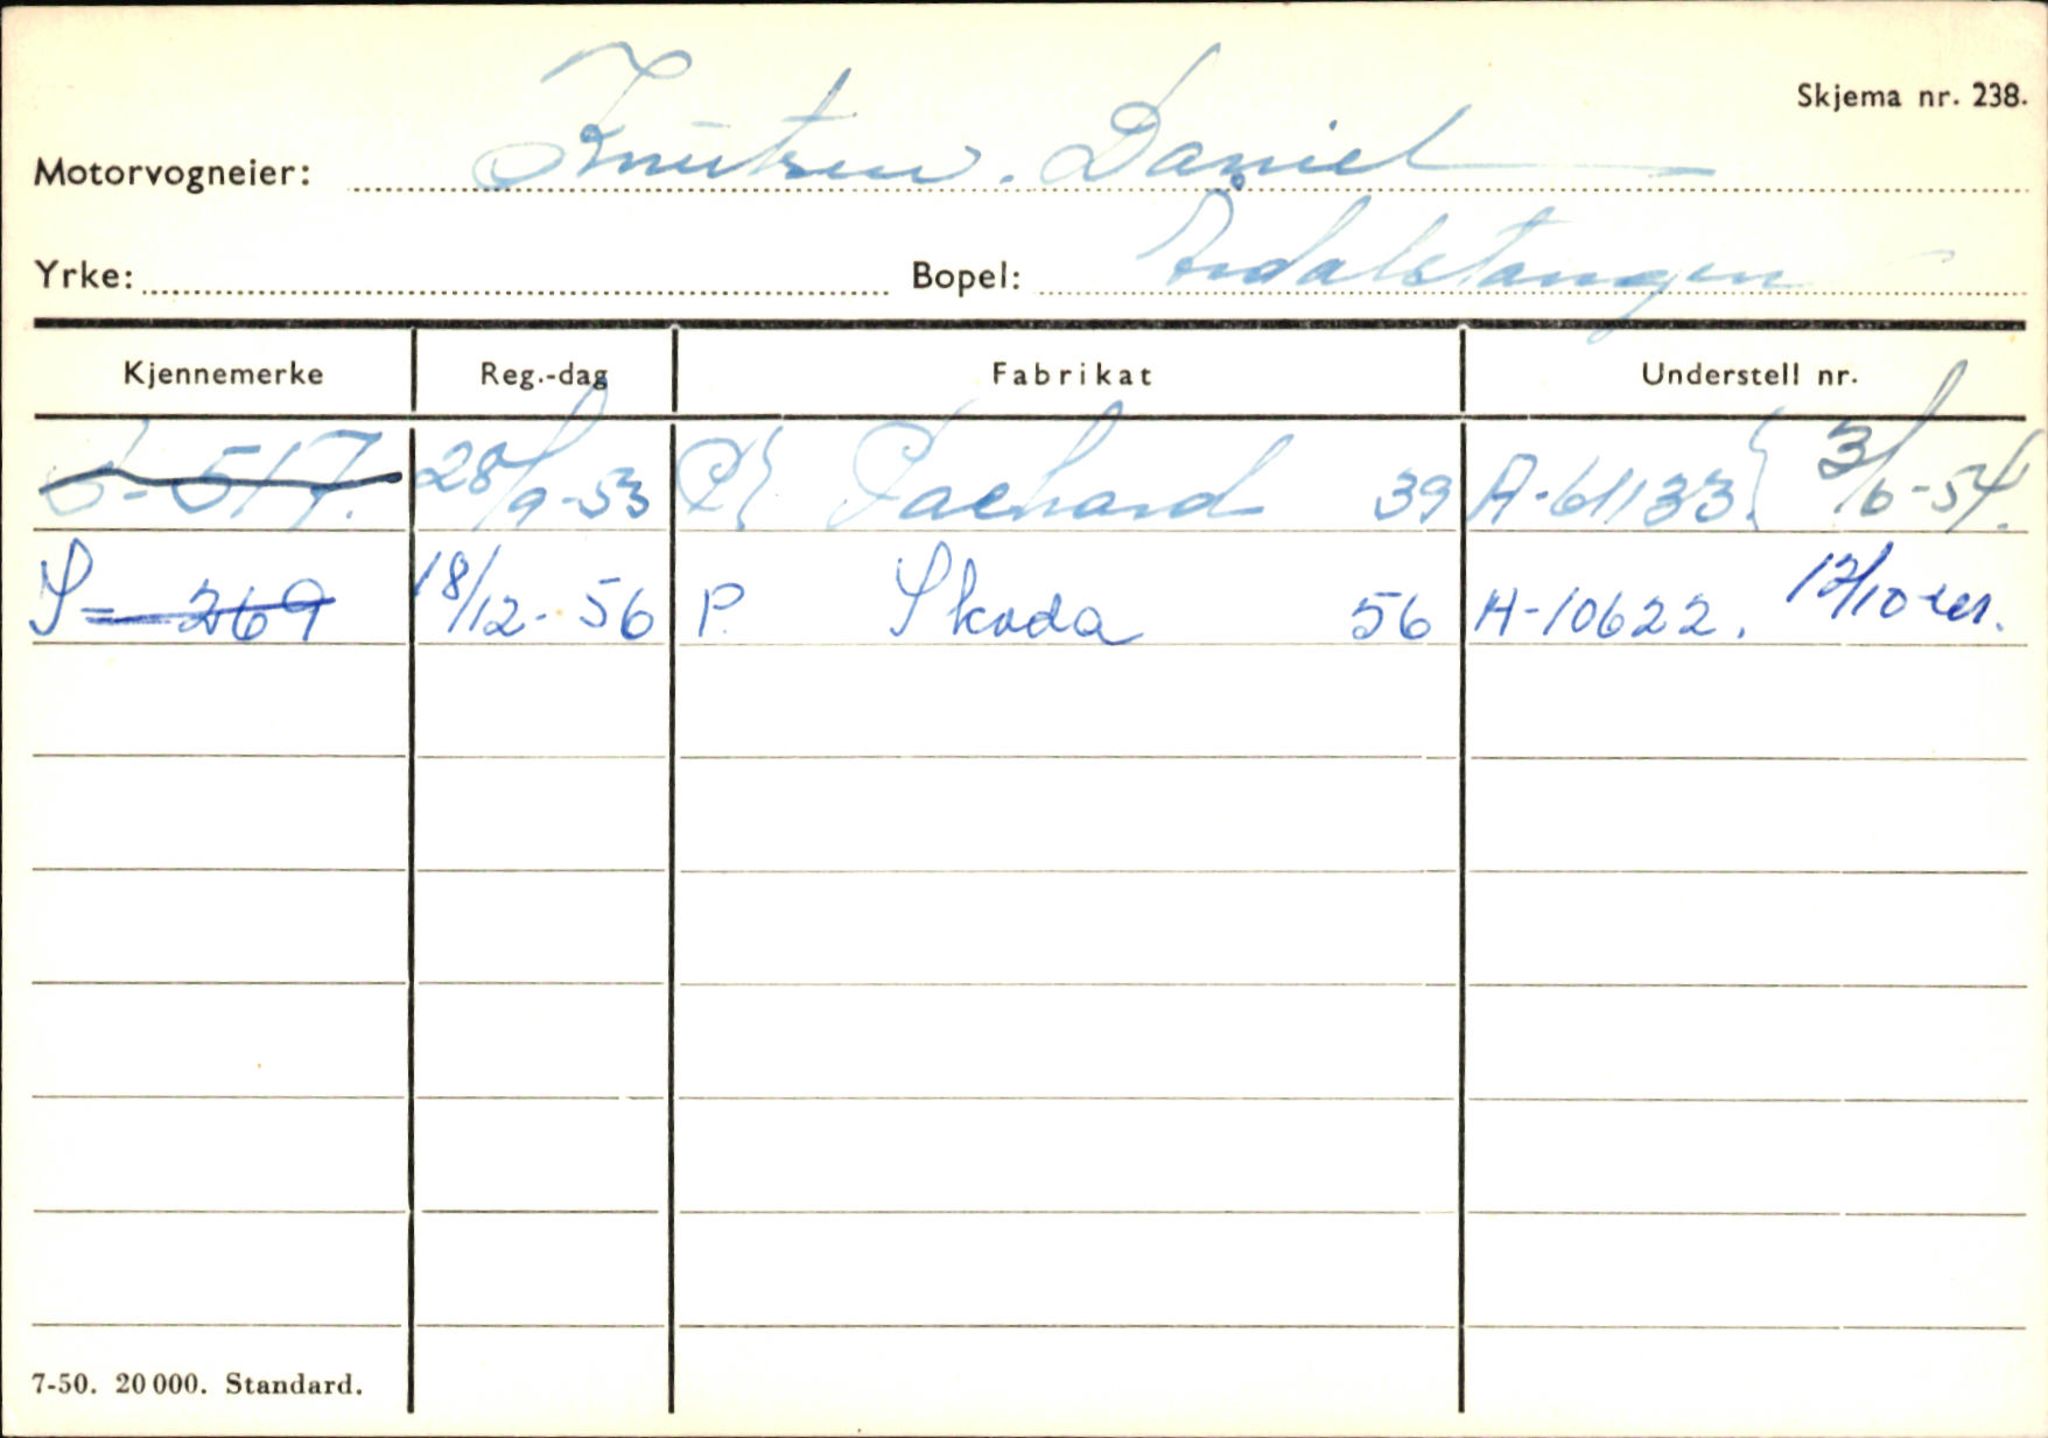 Skjema nr. 238.
Motorvogneier: Knutsen. Daniel
Yrke: Bopel: Årdalstangen
Kjennemerke Reg.-dag Fabrikat Understell nr.
S-517. 28/9-53 P} Packard 39 A-61133. { 3/6-54.
S-269 18/12-56 P. Skoda 56 H-10622. 12/10
7-50. 20 000. Standard.